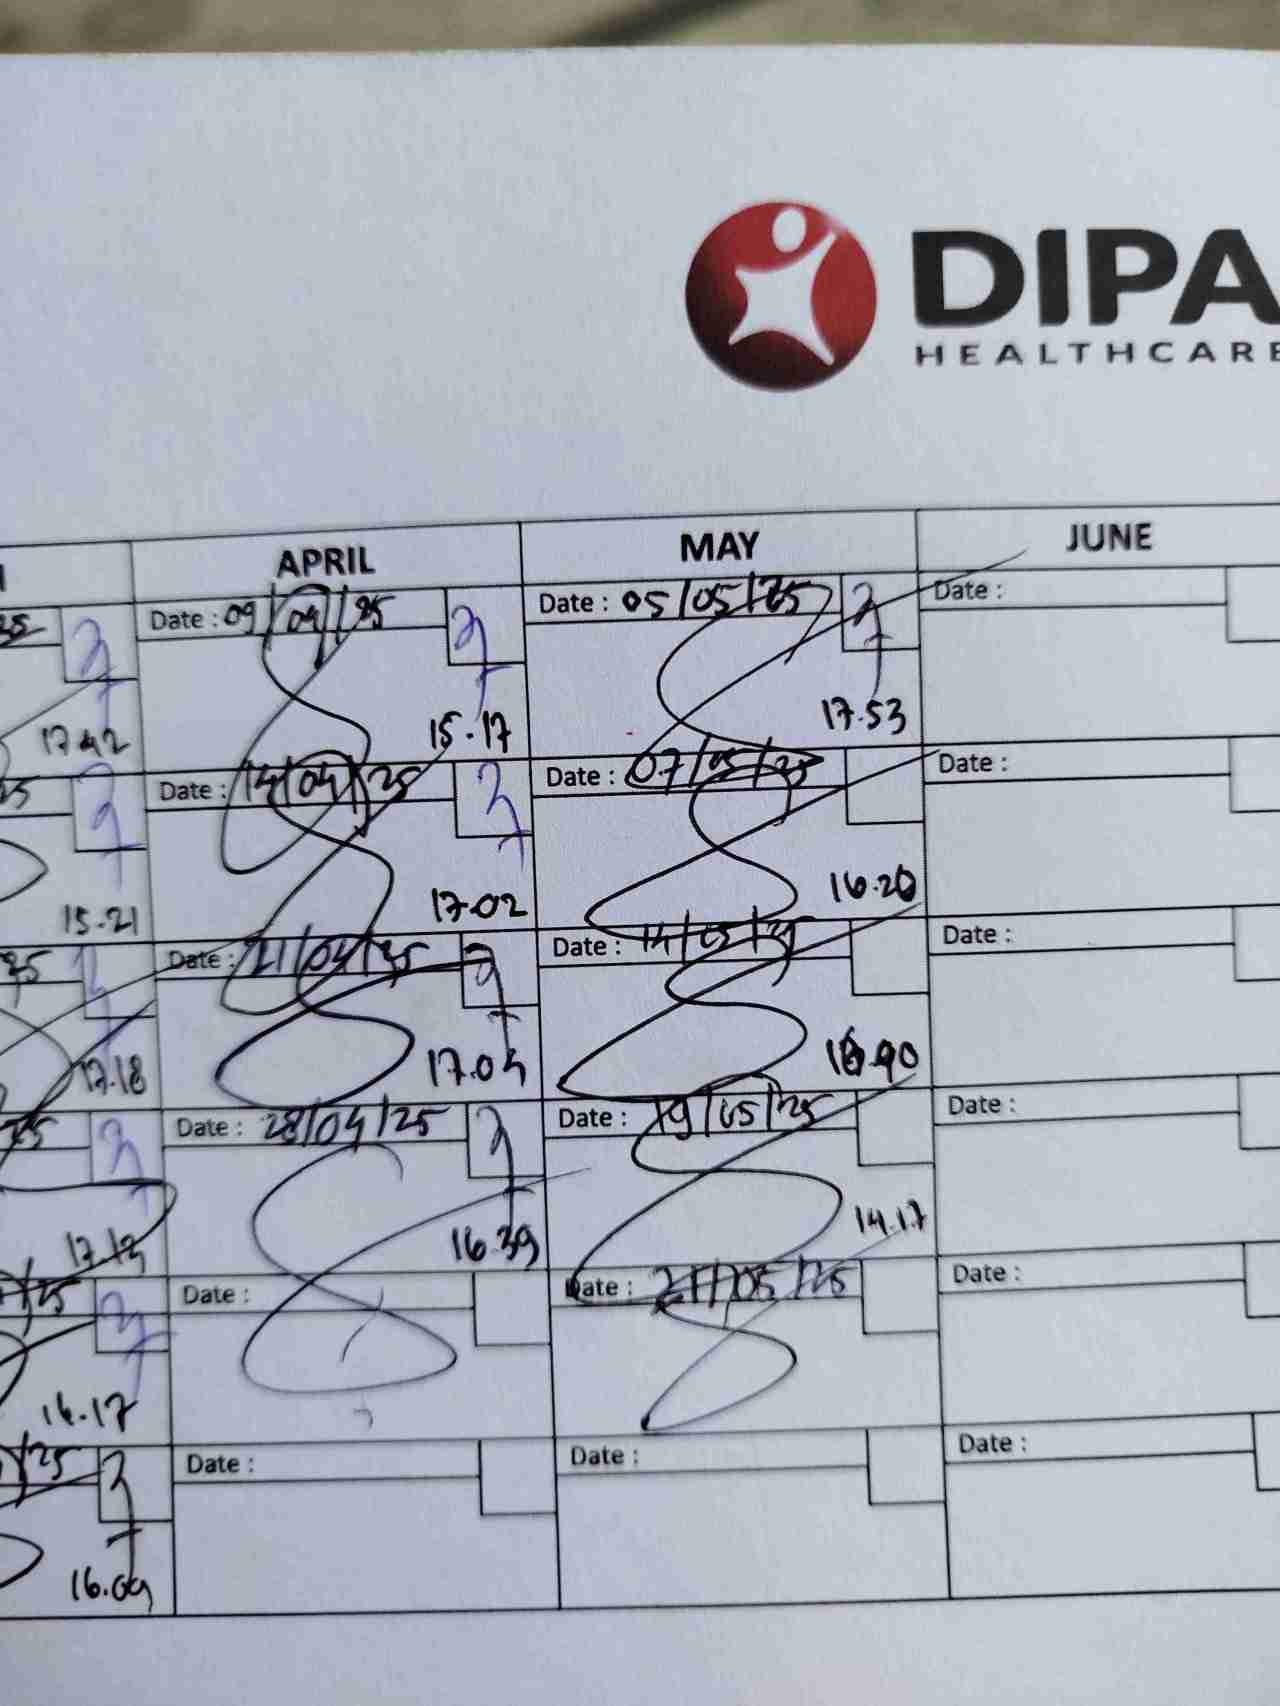 DIPA
HEALTHCARE
APRIL MAY JUNE
Date : 09/04/25 Date : 05/05/25 Date :
17.42 15.17 17.53
Date : 14/04/25 Date : 07/05/25 Date :
15.21 17.02 16.20
Date : 21/04/25 Date : 14/05/25 Date :
17.18 17.04
Date : 28/04/25 Date : 19/05/25 Date :
17.13 16.39 14.17
Date : Date : 21/05/25 Date :
16.17
Date : Date : Date :
16.09